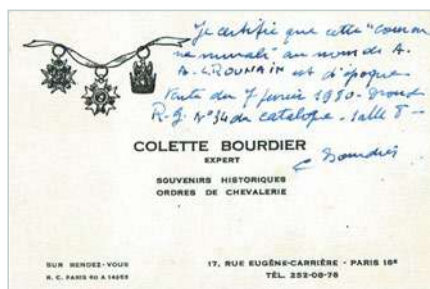 Je certifie que cette "couron
ne murale" au nom de A.
est d'époque
Vente du 7 février 1980 - Drouot
R.G. N°34 du catalogue - Salle 8 -
C Bourdier
COLETTE BOURDIER
EXPERT
SOUVENIRS HISTORIQUES
ORDRES DE CHEVALERIE
SUR RENDEZ-VOUS
R. C. PARIS
17, RUE EUGÈNE-CARRIÈRE - PARIS 18e
TÉL. 252-08-78